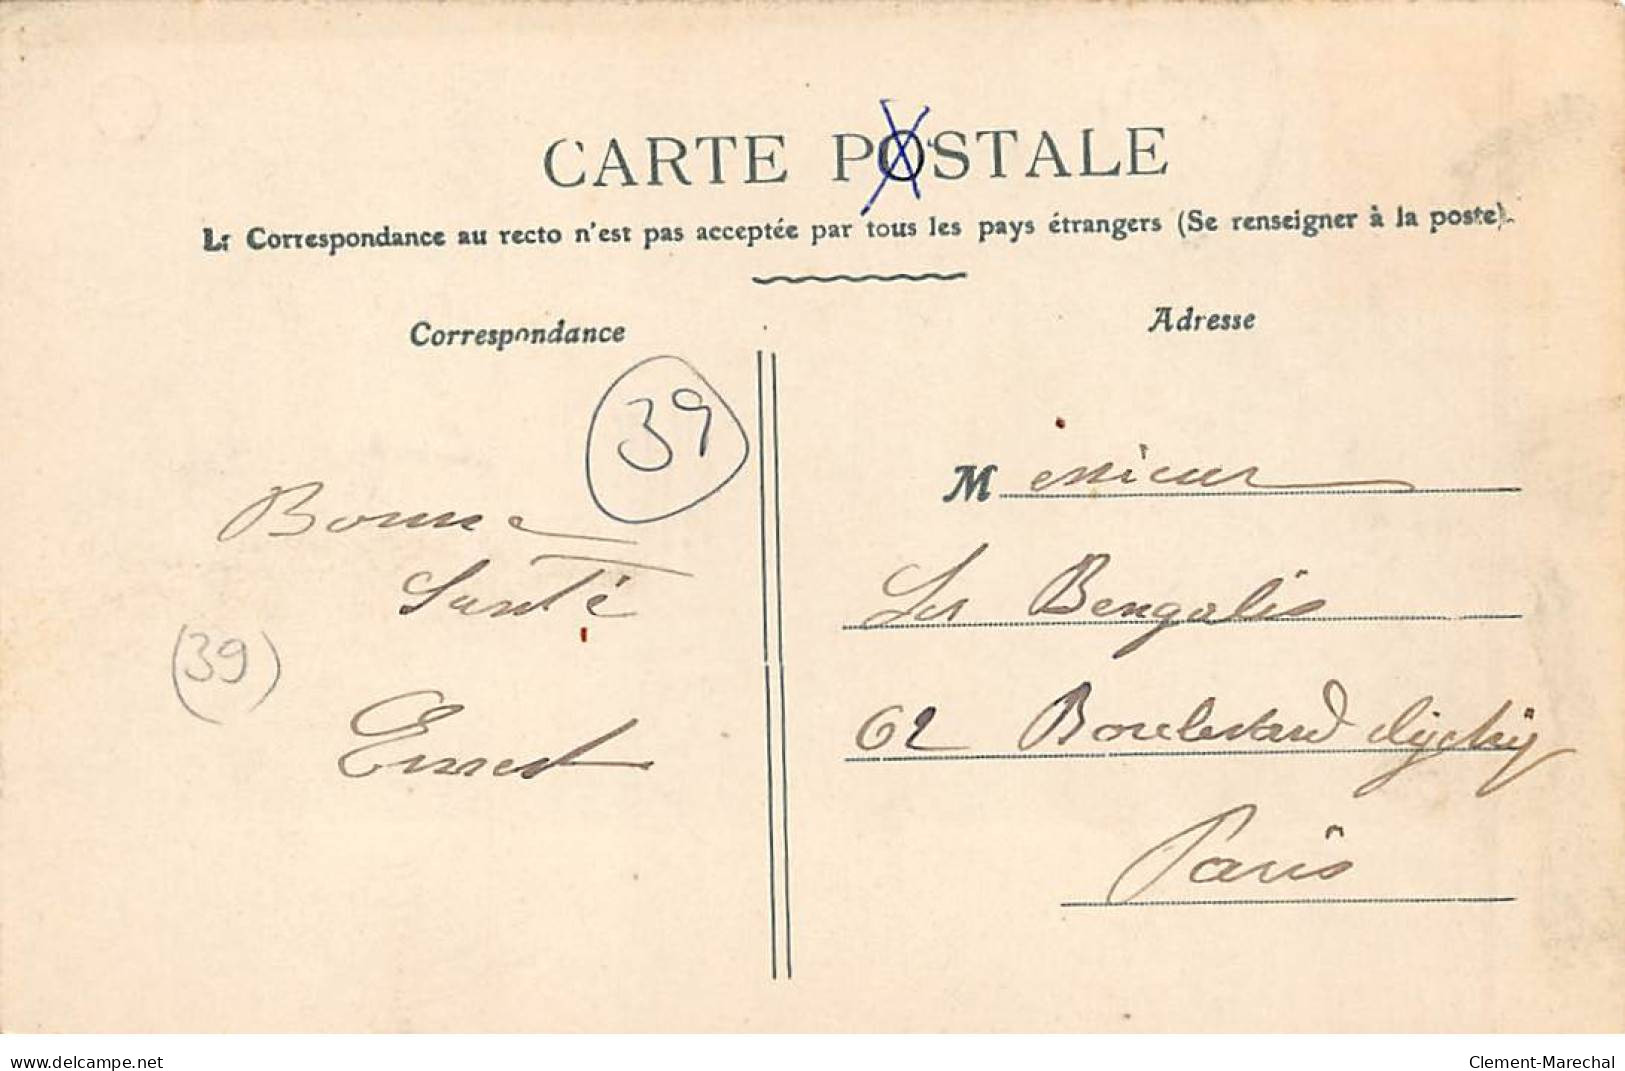 CARTE POSTALE
La Correspondance au recto n'est pas acceptée par tous les pays étrangers (Se renseigner à la poste).
Correspondance
Adresse
39
Bonne
Santé
(39)
Ernest
Messieurs
Les Bengalis
62 Boulevard Clychy
Paris
www.delcampe.net
Clement-Marechal